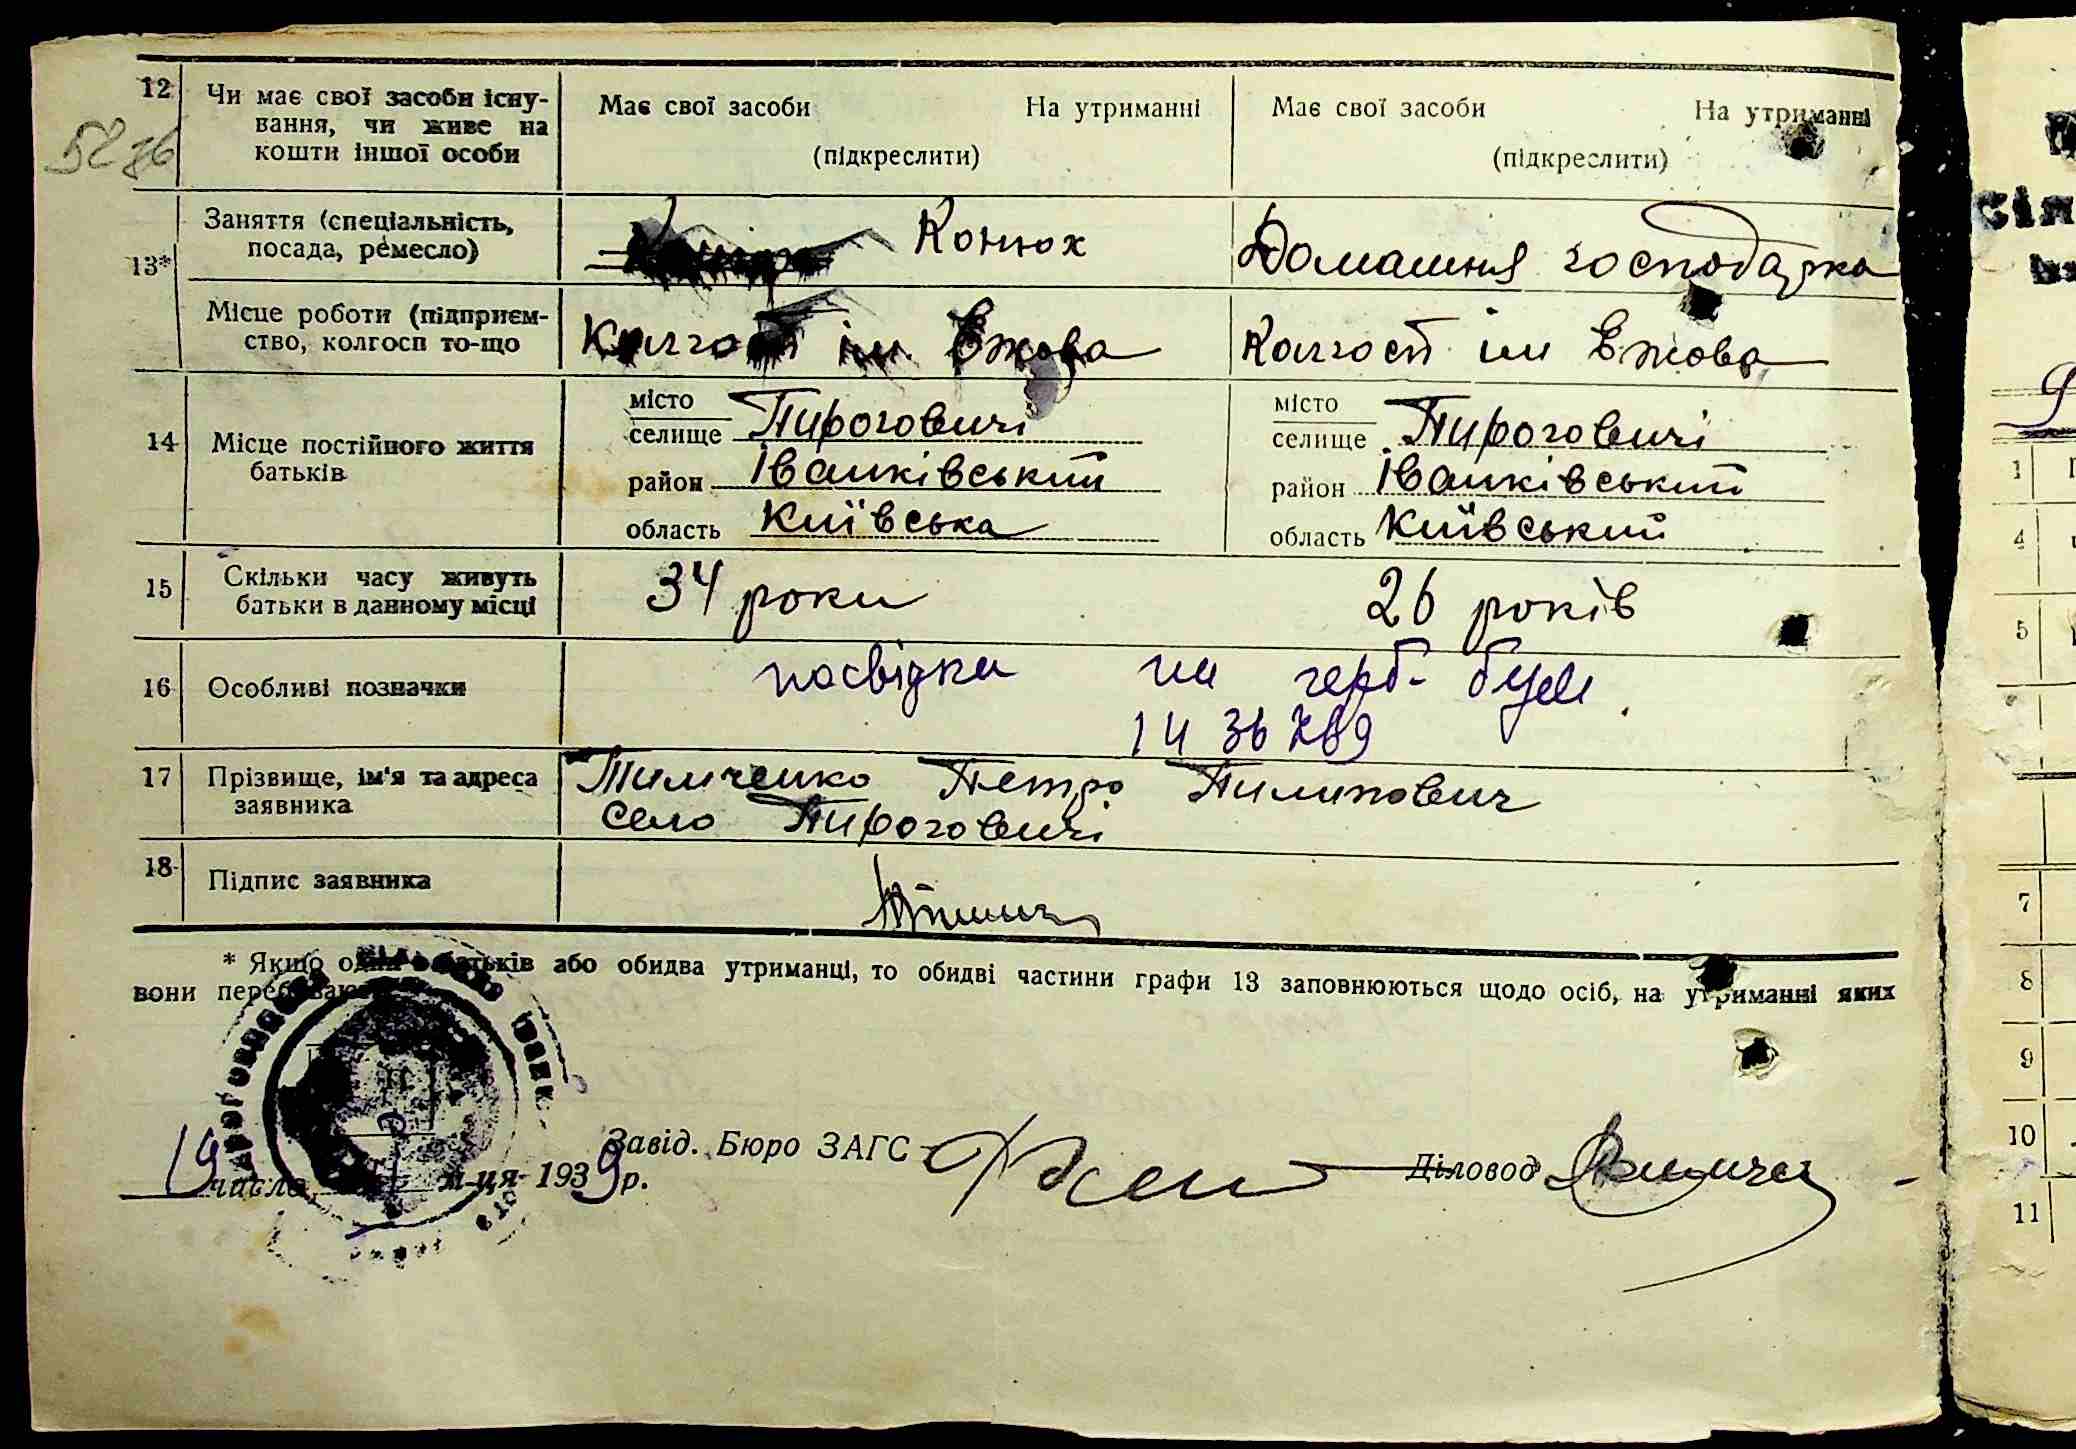 12 Чи має свої засоби існу-
вання, чи живе на
кошти іншої особи
Має свої засоби На утриманні
(підкреслити)
Має свої засоби На утриманні
(підкреслити)
13*
Заняття (спеціальність,
посада, ремесло)
Конюх
Домашня господарка
Місце роботи (підприєм-
ство, колгосп то-що
Колгосп ім Єжова
Колгосп ім Єжова
14 Місце постійного життя
батьків
місто
селище Пироговичі
район Іванківський
область Київська
місто
селище Пироговичі
район Іванківський
область Київський
15 Скільки часу живуть
батьки в данному місці
34 роки
26 років
16 Особливі позначки
посвідка на герб.
17 Прізвище, ім'я та адреса
заявника
Тимченко Петро Пилипович
Село Пироговичі
18 Підпис заявника
* Якщо один з батьків або обидва утриманці, то обидві частини графи 13 заповнюються щодо осіб, на утриманні яких
вони перебувають
Завід. Бюро ЗАГС
Діловод
19 числа м-ця 1939 р.
1
4
5
7
8
9
10
11